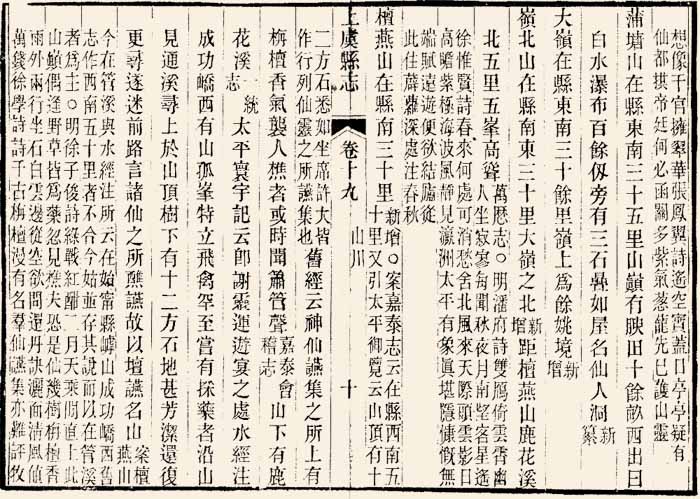 想像千官擁翠華張鳳翼詩遙空寶蓋日亭亭疑有
仙都拱帝廷何必函關多紫氣蒸龍先已護山靈
蒲塘山在縣東南三十五里山巔有腴田十餘畝西出曰
白水瀑布百餘仭旁有三石礨如屋名仙人洞新纂
大嶺在縣東南三十餘里嶺上爲餘姚境新增
嶺北山在縣南東三十里大嶺之北新增距檀燕山鹿花溪
北五里五峯高聳
萬歷志○明潘府詩雙鳬倚雲霄幽
人坐寂寥每聞秋夜月南望客星遙
徐惟賢詩春來何處可消愁舍北風來天際頭雲影日
高 紫極海波風靜見瀛洲太平有象眞堪隱慷慨無
端賦遠遊便欲結廬從
此住薜蘿深處注春秋
上虞縣志 卷十九 山川 十
檀燕山在縣南三十里
新增○案嘉泰志云在縣西南五
十里又引太平御覽云山頂有十
二方石悉如坐席許大皆
作行列仙靈之所讌集也
舊經云神仙讌集之所上有
栴檀香氣襲人樵者或時聞簫管聲嘉泰會稽志山下有鹿
花溪一統志太平寰宇記云卽謝靈運遊宴之處水經注
成功嶠西有山孤峯特立飛禽罕至嘗有採藥者沿山
見通溪尋上於山頂樹下有十二方石地甚芳潔還復
更尋遂迷前路言諸仙之所醮讌故以壇讌名山案檀燕山
今在管溪與水經注所云在始寧縣嶀山成功嶠西舊
志作西南五十里者不合今始並存其說而以在管溪
者爲主○明徐子俊詩綠戰紅酣二月天乘閒直上此
山巔偶逢野草皆爲藥忽見樵夫恐是仙幾樹栴檀香
雨外兩行坐石白雲邊從空欲問還丹訣灑面清風値
萬錢徐學詩詩千古栴檀漫有名羣仙讌集亦難評牧